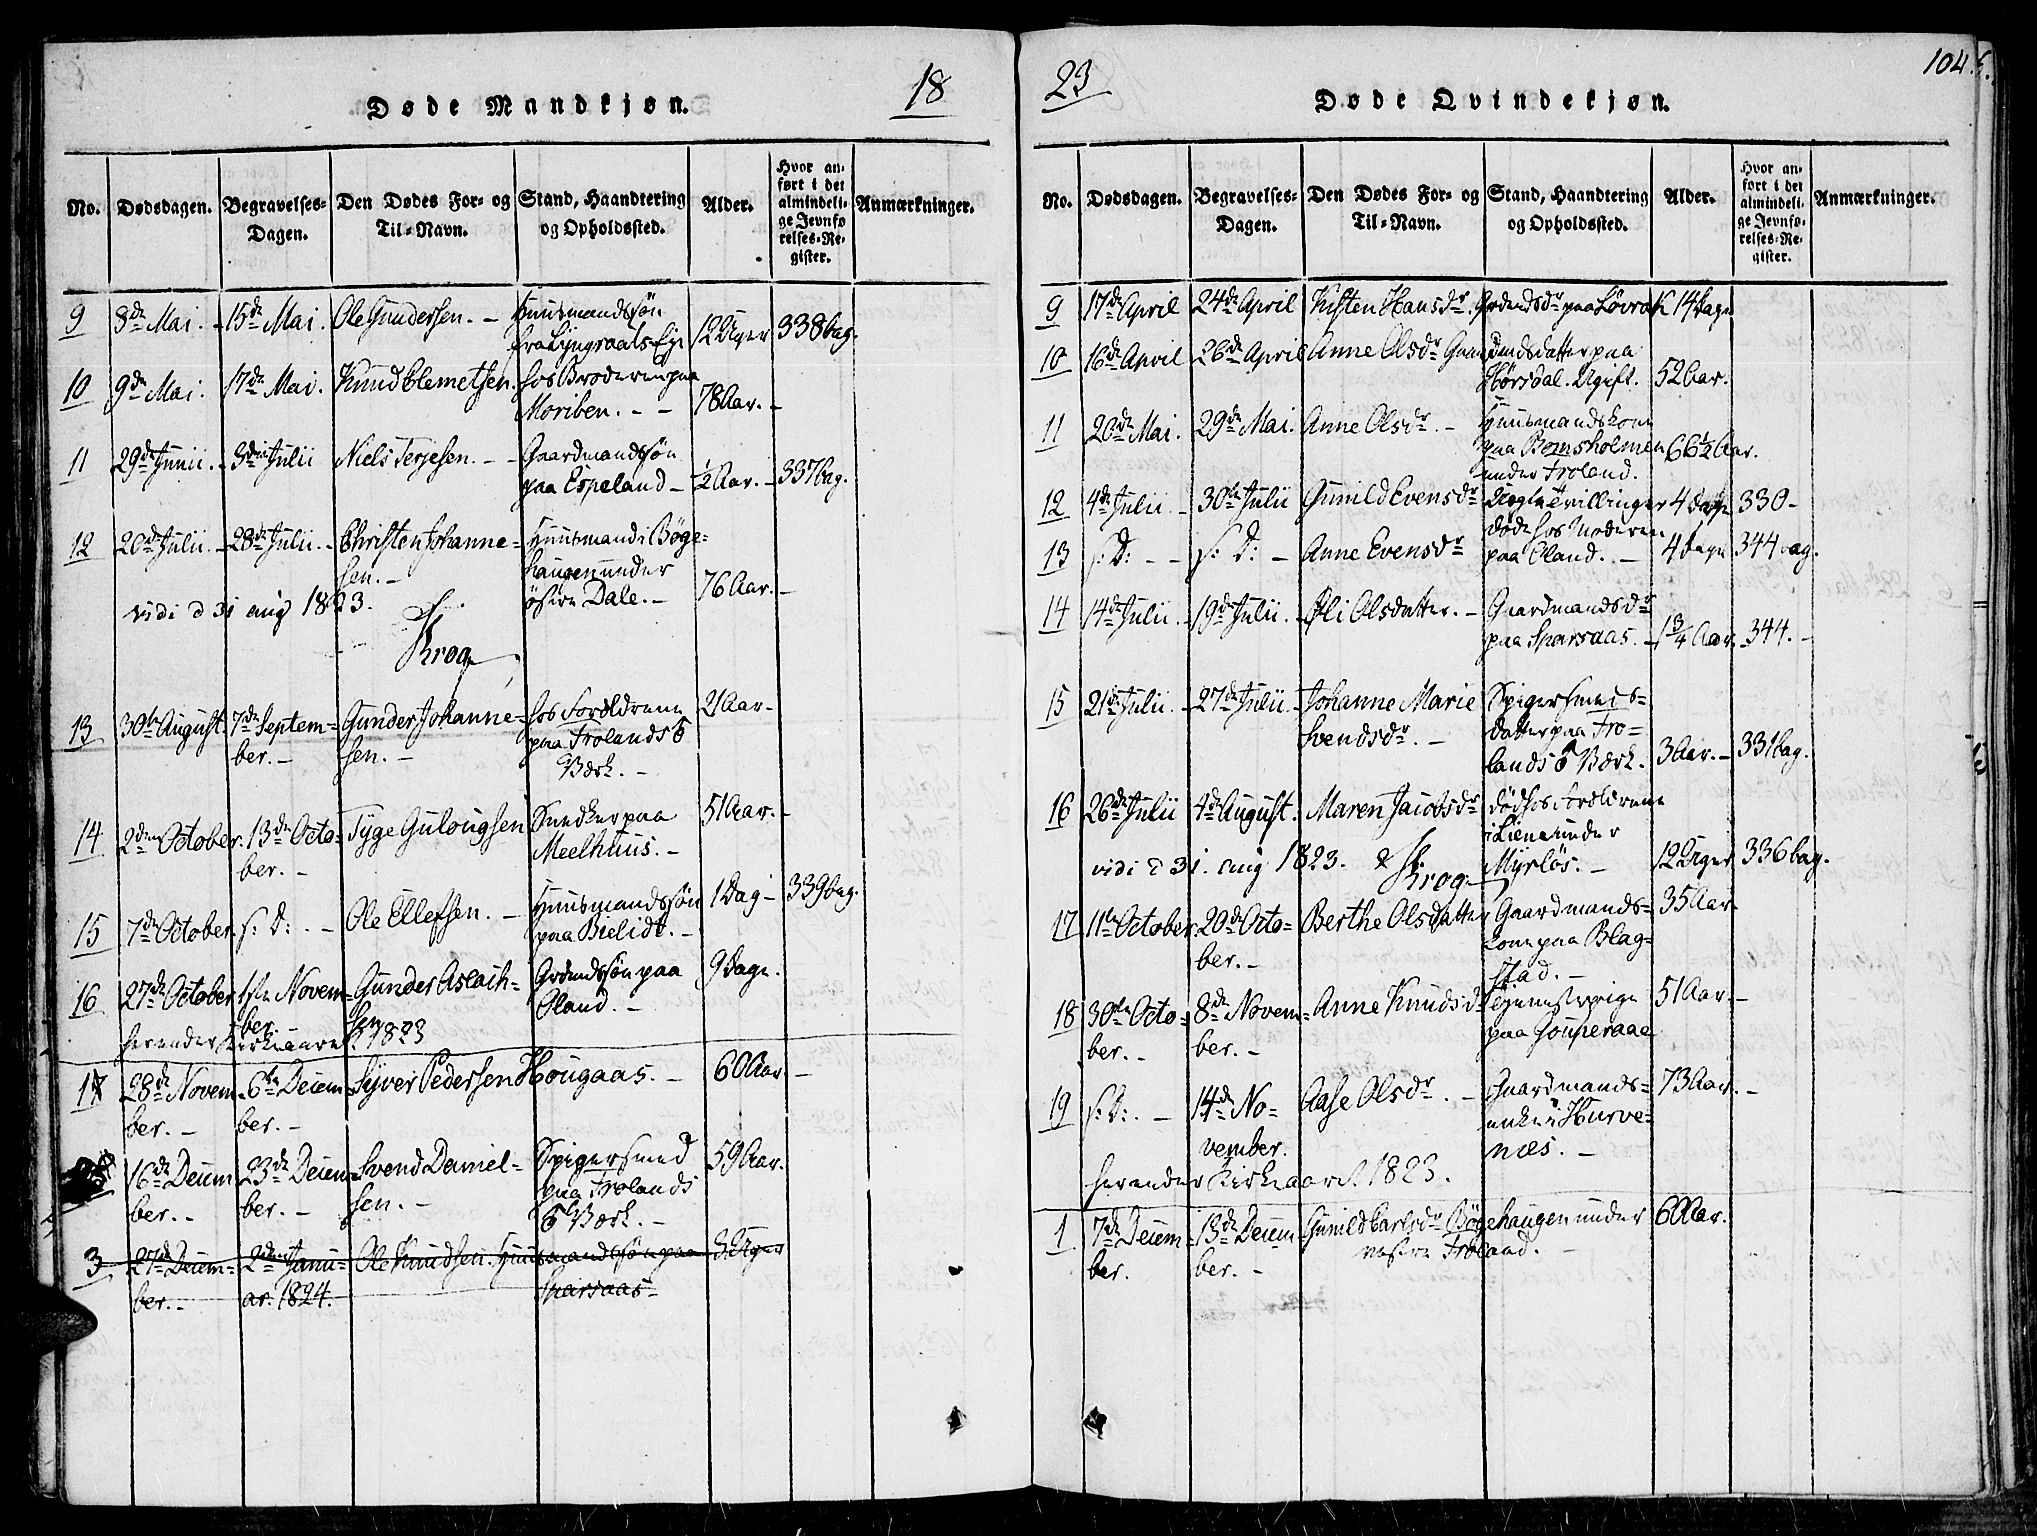 18
Døde Mandkjøn.
No. Dødsdagen. Begravelses-Dagen. Den Dødes For- og Til-Navn. Stand, Haandtering og Opholdssted. Alder. Hvor anført i det almindelige Jevnførelses-Register. Anmærkninger.
9 8de Mai. - 15de Mai. Ole Gundersen. - Huusmandssøn
fra Lyngraals Eje 12 Uger 338 bag.
10 9de Mai. 17de Mai. Knud Clemetsen. hos Broderen paa
Moriben. - - 78 Aar. -
11 29de Junii. - 3die Julii Niels Terjesen. - Gaardmandssøn
paa Espeland - 1/2 Aar. - 337 bag.
12 20de Julii. - 28de Julii. - Christen Johanne=
sen. -
Huusmand i Bøge=
haugen under
østre Dale. - 76 Aar. -
vidi d 31 aug 1823.
Krog
13 30te August. 7de Septem=
ber. -
Gunder Johanne=
sen. -
hos Forældrene
paa Frolands
Værk. -
2 Aar -
14 2den October. 13de Octo=
ber. -
Tyge Gulougsen Snedker paa
Meelhuus. -
51 Aar. -
15 7de October. s: D: - Ole Ellefsen. - Huusmandssøn
paa Bielidt. -
1 Dag - 339 bag.
16 27de October 1ste Novem=
ber. -
Gunder Aslach=
sen
Grdmdssøn paa
Øland. -
9 Dage.
herender Kirkeaaret 1823
17 28de Novem=
ber. -
6te Decem=
ber. -
Syver Pedersen Hougaas. - 60 Aar. -
16de Decem
ber. -
23de Decem=
ber. -
Svend Daniel=
sen. -
Spigersmed
paa Frolands
Værk. -
59 Aar.
3 27de Decem=
ber. -
2den Janu=
ar. 1824.
Ole Knudsen. Huusmandssøn paa
Sparsaas
3 Uger
23
Døde Qvindekjøn.
104.
No. Dødsdagen. Begravelses-Dagen. Den Dødes For- og Til-Navn. Stand, Haandtering og Opholdssted. Alder. Hvor anført i det almindelige Jevnførelses-Register. Anmærkninger.
9 17de April 24de April Kisten Hansdr. Grdmdsdr paa Løvrak 14 Dage
10 16de April 26de April Anne Olsdr Gaardmdsdatter paa
Hørsdal. Ugift. 52 Aar.
11 20de Mai. 29de Mai. Anne Olsdr. - Huusmandskone
paa Bomsholmen
under Froland.
66 1/2 Aar.
12 4de Julii - 30te Julii Gunild Evensdr Uægte Tvillinger 4 dage 330 -
døde hos Moderen
13 s: D: - - s: D: - Anne Evensdr paa Eland. - 4 dage 344 bag.
14 14de Julii - 19de Julii - Øli Olsdatter. - Gaardmandsdr
paa Sparsaas. - 1 3/4 Aar. - 344. -
15 21de Julii - 27de Julii. - Johanne Marie
Svendsdr. -
Spigersmeds=
datter paa Fro=
lands Værk. 3 Aar. - 331 bag.
16 26de Julii 4de August. Maren Jacobsdr død hos Forældrene
i Liene under
Myrløs. - 12 Uger 336 bag.
vidi d 31. aug 1823. Krog
17 11te October. 20de Octo=
ber. -
Berthe Olsdatter Gaardmands=
kone paa Blag=
stad. -
35 Aar -
18 30te Octo=
ber. -
8de Novem=
ber. -
Anne Knudsd.
paa
51 Aar. -
19 s: D: - 14de No=
vember.
Aase Olsdr. - Gaardmands=
enke i Hurve=
næs. -
73 Aar. -
herender Kirkeaaret 1823.
1 7de Decem=
ber.
13de Decem=
ber. -
Gunild Carlsdr Bøgehaugen under
Froland. -
60 Aar.